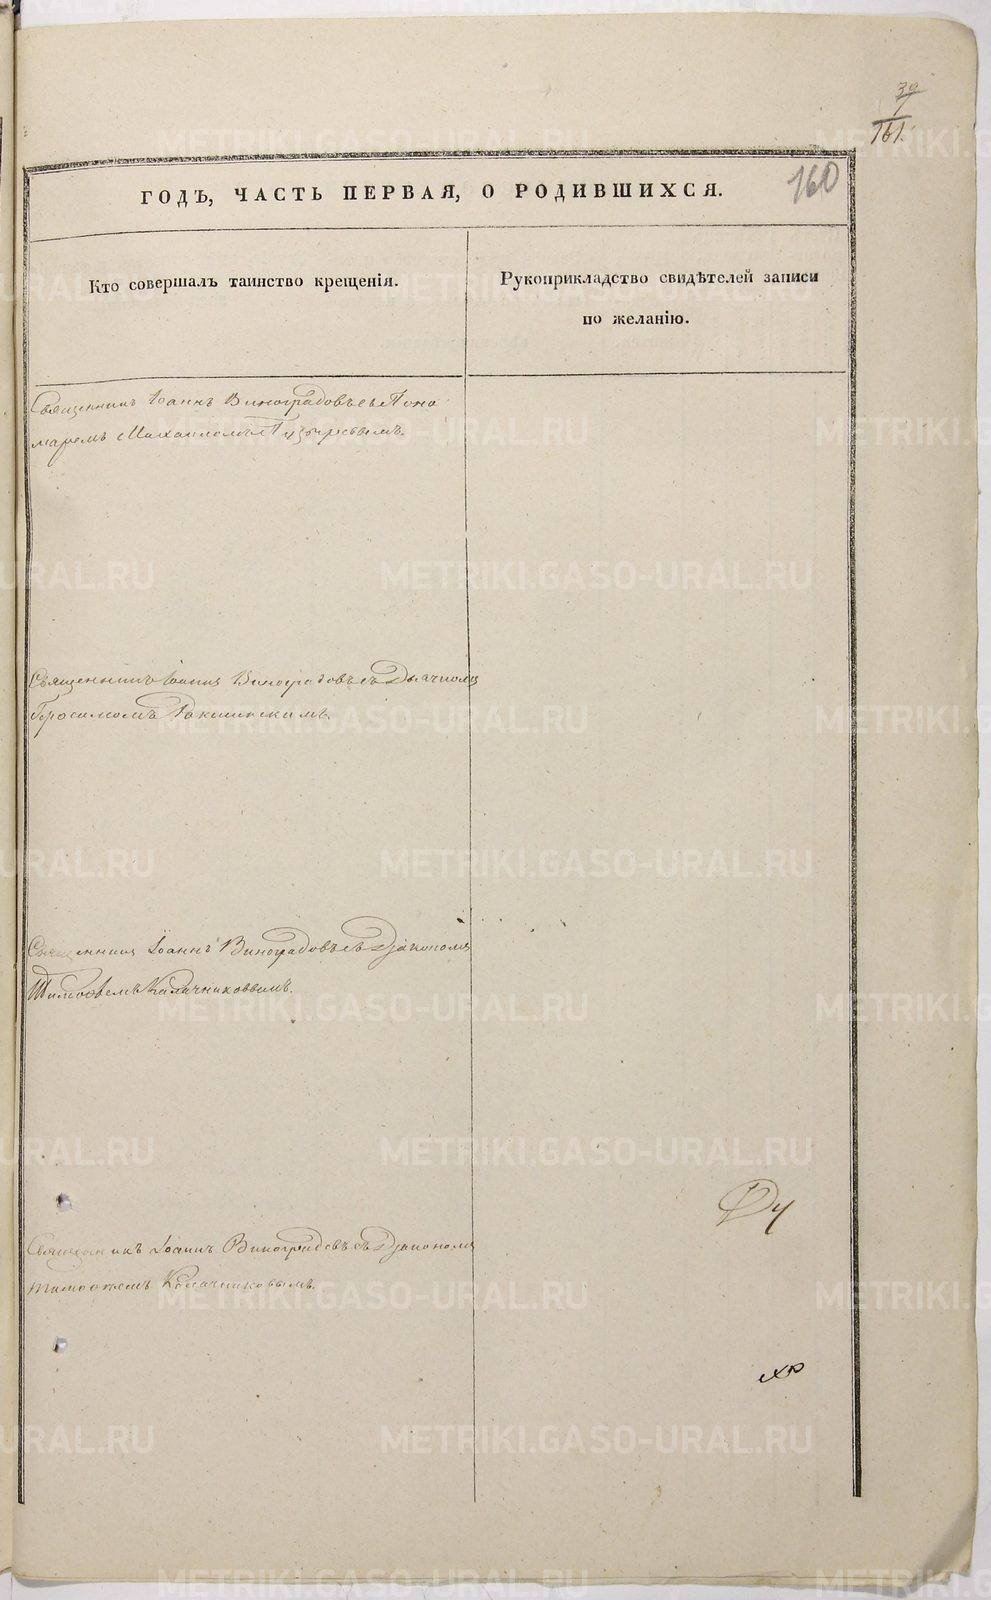 39
1
161.
160
ГОДЪ, ЧАСТЬ ПЕРВАЯ, О РОДИВШИХСЯ.
Кто совершалъ таинство крещенія.
Рукоприкладство свидѣтелей записи
по желанію.
Священникъ Іоаннъ Виноградовъ съ Поно
маремъ Михаиломъ Пузыревымъ.
Священникъ Іоаннъ Виноградовъ съ Дьячкомъ
Герасимомъ
Священникъ Іоаннъ Виноградовъ съ Діакономъ
Тимоѳеемъ Калачниковымъ.
Священникъ Іоаннъ Виноградовъ съ Діакономъ
Тимоѳеемъ Калачниковымъ.
METRIKI.GASO-URAL.RU